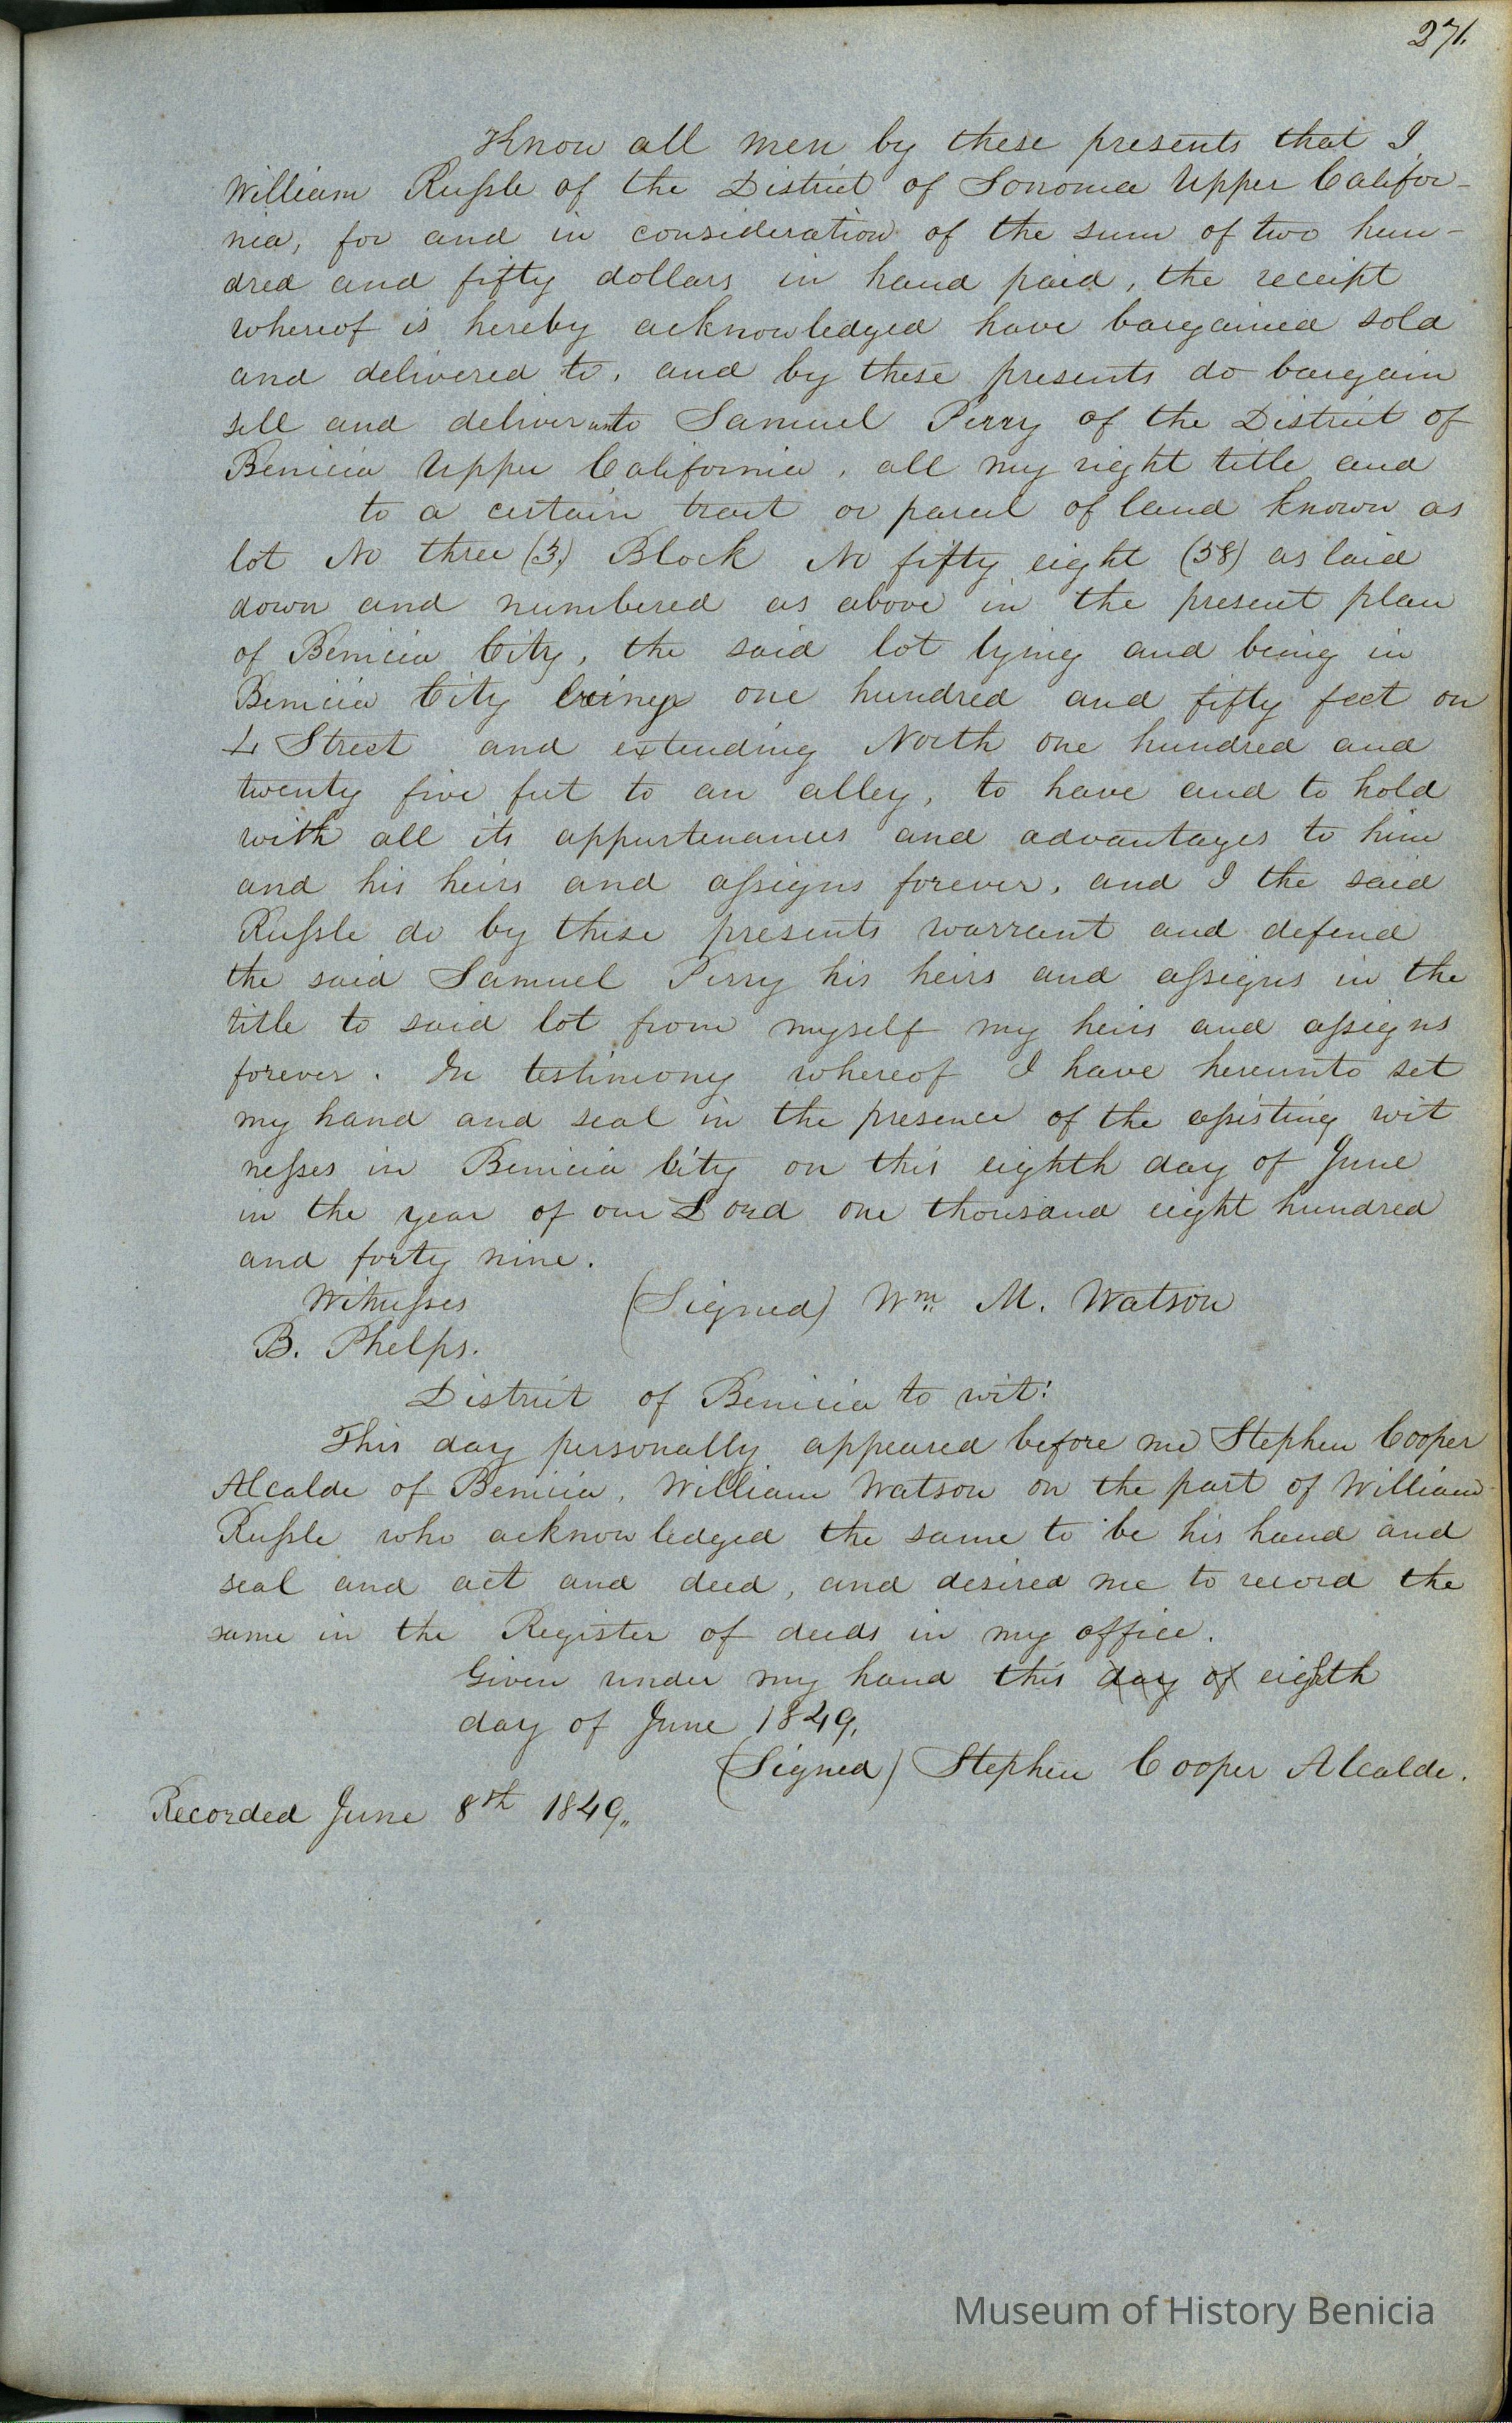 271.
Know all men by these presents that I
William Russle of the District of Sonoma Upper Califor-
nia, for and in consideration of the sum of two hun-
dred and fifty dollars in hand paid, the receipt
whereof is hereby acknowledged have bargained sold
and delivered to, and by these presents do bargain
sell and deliver unto Samuel Perry of the District of
Benicia Upper California, all my right title and
to a certain tract or parcel of land known as
lot No three (3) Block No fifty eight (58) as laid
down and numbered as above in the present plan
of Benicia City, the said lot lying and being in
Benicia City being one hundred and fifty feet on
L Street and extending North one hundred and
twenty five feet to an alley, to have and to hold
with all its appurtenances and advantages to him
and his heirs and assigns forever, and I the said
Russle do by these presents warrant and defend
the said Samuel Perry his heirs and assigns in the
title to said lot from myself my heirs and assigns
forever. In testimony whereof I have hereunto set
my hand and seal in the presence of the assisting wit
nesses in Benicia City on this eighth day of June
in the year of our Lord one thousand eight hundred
and forty nine.
Witnesses (Signed) Wm M. Watson
B. Phelps.
District of Benicia to wit:
This day personally appeared before me Stephen Cooper
Alcalde of Benicia, William Watson on the part of William
Russle who acknowledged the same to be his hand and
seal and act and deed, and desired me to record the
same in the Register of deeds in my office.
Given under my hand this day of eighth
day of June 1849.
(Signed) Stephen Cooper Alcalde.
Recorded June 8th 1849,,
Museum of History Benicia